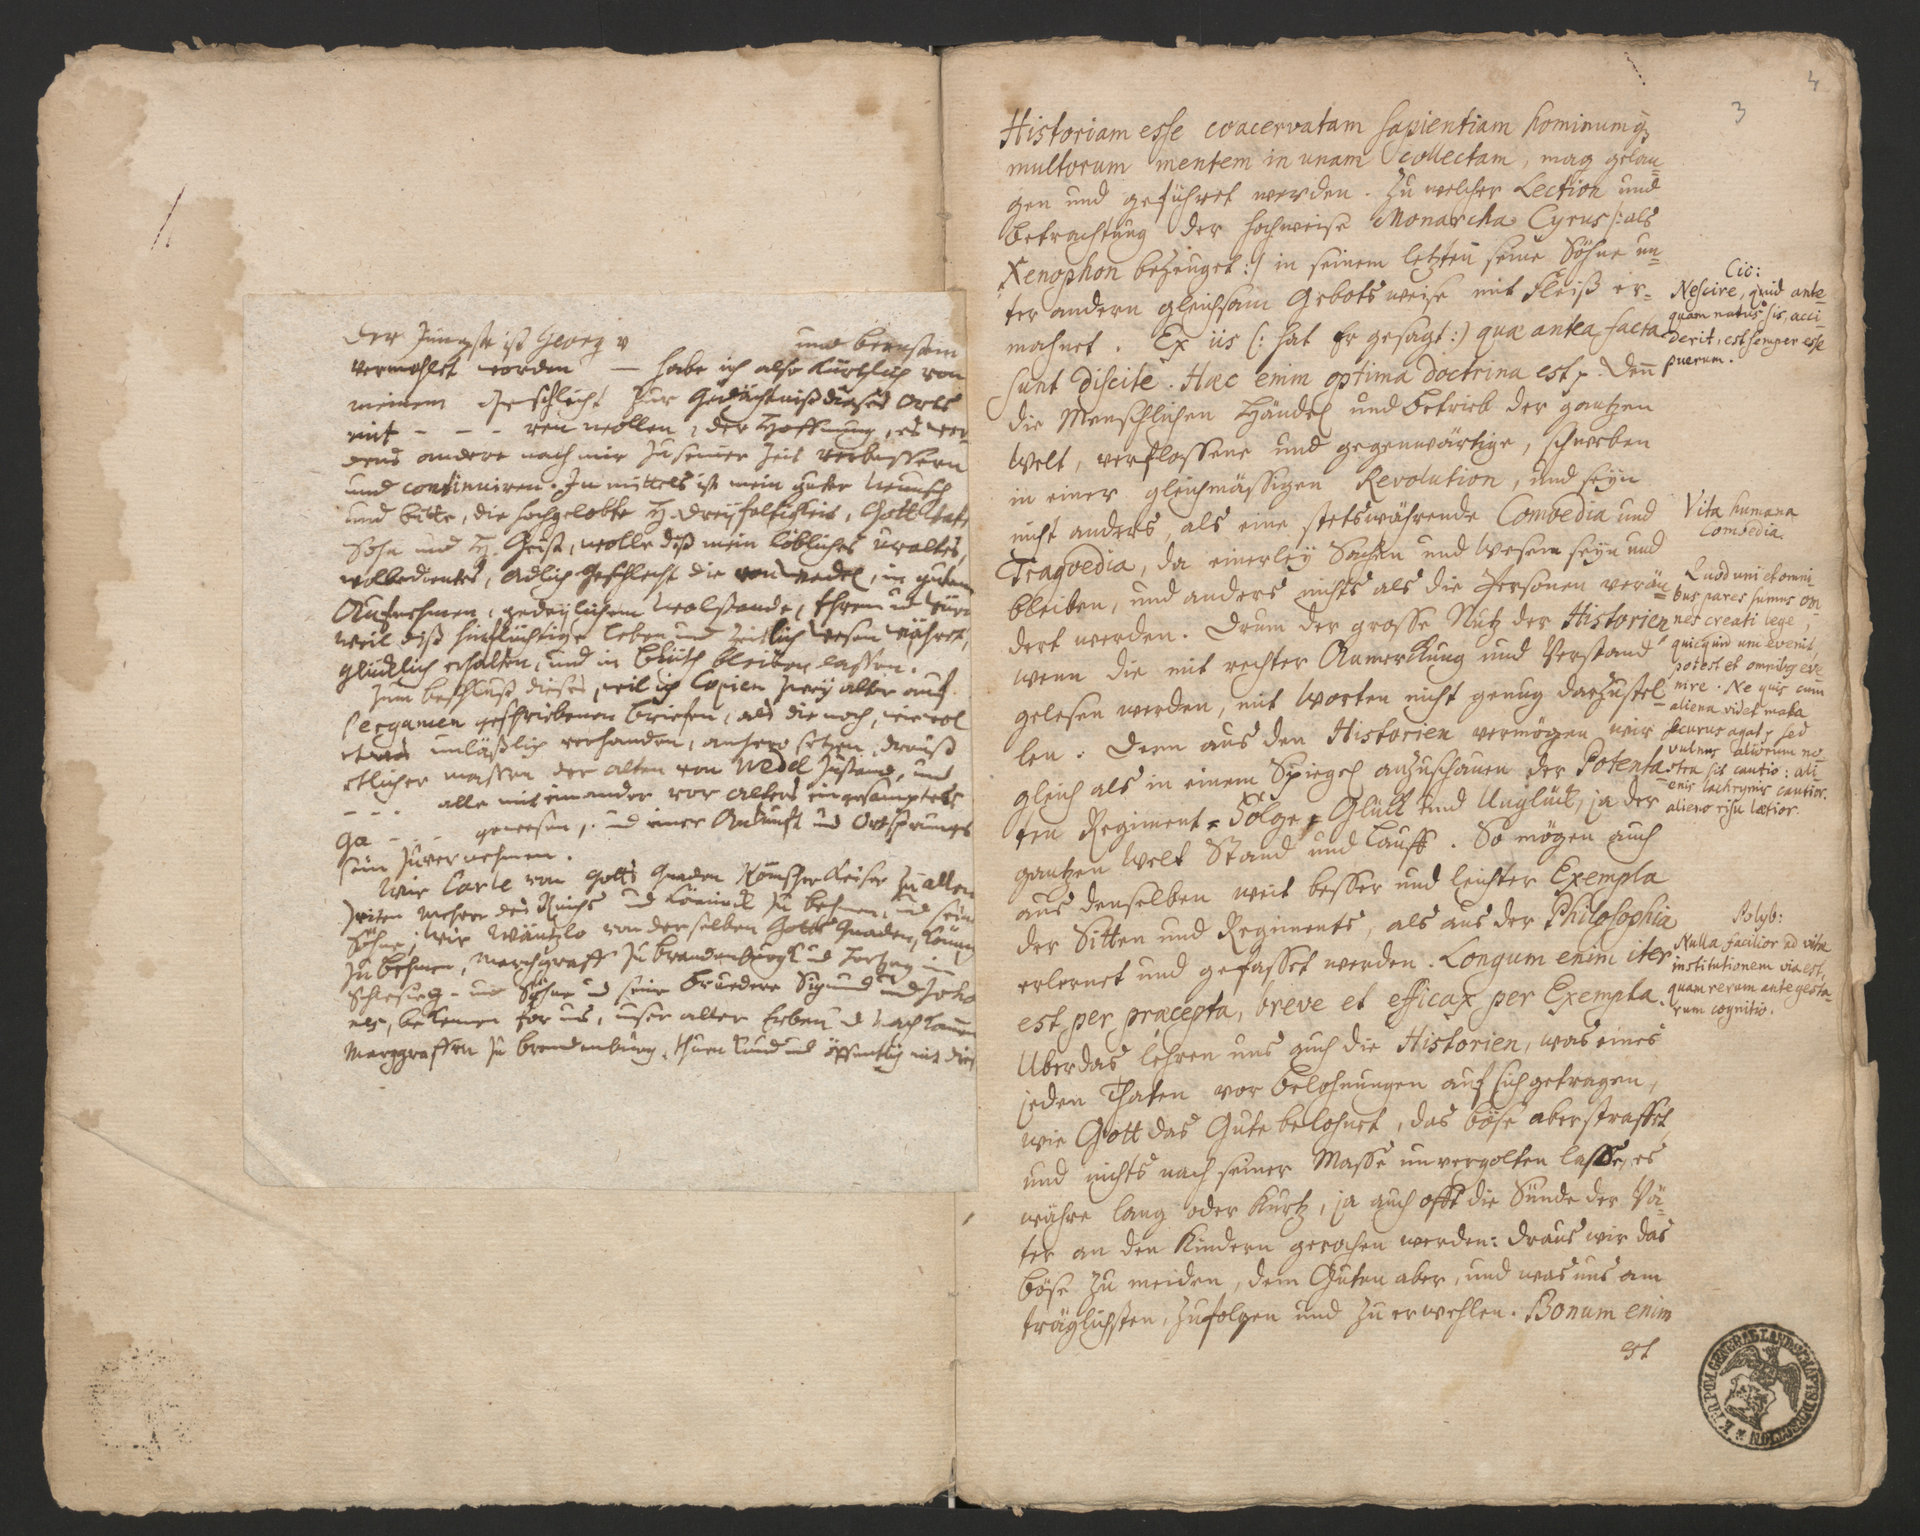 Der Jüngste ist Georg v und bernstein
vermehlet worden — habe ich also Kürtzlich von
meinem Geschlecht zur Gedächtniß dieses Orts
mit - - - ren wollen, der Hoffnung, es wer-
dens andere nach mir zu seiner Zeit verbessern
und continuiren. In mittels ist mein guter Wunsch
und bitte, die hochgelobte H. Dreyfaltigkeit, Gott Vater
Sohn und H. Geist, wolle diß mein löbliches uraltes,
wolbedientes, Adlich Geschlecht die von Wedel, in gutem
Aufnehmen, gedeylichem Wolstande, Ehren und
weil diß hinflüchtige leben und zeitlich wesen währet,
glücklich erhalten, und in blüth bleiben lassen.
Zum beschluß dieses, weil ich Copien zwey alter auf
Pergamen geschriebenen briefen, als die noch, wie wol
etwas unläßlich vorhanden, anhero setzen, drauß
etlicher massen der alten von Wedel Zustand, und
- - - alle mit einander vor alters eingesampt
Ga - - - gewesen, und einer Ankunft und Ortsprungs
sein zuvernehmen.
Wir Carle von Gotts Gnaden Römscher Keiser zu allen
zeiten Mehrer des Reichs und Köninck zu behmen, und sein
Söhne, Wir Wäntzlo von derselben Gotts Gnaden, Köning
zu behmen, Marchgraff zu brandenburgk und Hertzog in
Schlesien - und Söhne und seine bruedere Sigmund und Joha
nes, bekennen for uns, unser alter Erben und Nachkomen
Marggraffen zu brandenburg, thuen kund und öffentlich mit dies
3
4
Historiam esse coacervatam sapientiam hominumq;
multorum mentem in unam collectam, mag gelan-
gen und geführet werden. Zu welcher Lection und
betrachtung der hochweise Monarcha Cyrus /: als
Xenophon bezeuget :/ in seinem letzten seine Söhne un-
ter andern gleichsam Gebots weise mit Fleiß er-
mahnet. Ex iis (: hat Er gesagt :) quæ antea facta
sunt discite. Hæc enim optima doctrina est. Denn
die Menschlichen Händel und Betrieb der gantzen
Welt, verflossene und gegenwärtige, schweben
in einer gleichmässigen Revolution, und seyn
nicht anders, als eine stetswährende Comoedia und
Tragoedia, da einerley Sachen und Wesen seyn und
bleiben, und anders nichts als die Personen verän-
dert werden. Drum der grosse Nutz der Historien
wenn die mit rechter Anmerckung und Verstand
gelesen werden, mit Worten nicht genug darzustel-
len. Denn aus den Historien vermögen wir
gleich als in einem Spiegel anzuschauen der Potenta-
ten Regiment = Folge = Glück und Unglück, ja der
gantzen Welt Stand und Lauff. So mögen auch
aus denselben weit besser und leichter Exempla
der Sitten und Regiments, als aus der Philosophia
erlernet und gefasset werden. Longum enim iter
est per præcepta, breve et efficax per Exempla.
Uberdas lehren uns auch die Historien, was eines
jeden Thaten vor Belohnungen auf sich getragen,
wie Gott das Gute belohnet, das böse aber straffet,
und nichts nach seiner Masse unvergolten lasse, es
währe lang oder Kurtz, ja auch offt die Sünde der Vä-
ter an den Kindern gerochen werden: draus wir das
böse zu meiden, dem Guten aber, und was uns am
träglichsten, zufolgen und zu erwehlen. Bonum enim
est
Cic:
Nescire, quid ante-
quam natus sis, acci-
derit, est semper esse
puerum.
Vita humana
Comoedia.
Quod uni et omni-
bus pares sumus om-
nes creati lege,
quicquid uni evenit,
potest et omnibus eve-
nire. Ne quis cum
aliena videt mala
securus agat, sed
vulnus aliorum no-
stra sit cautio: ali-
enis lachrymis cautior,
alieno risu lætior.
Polyb:
Nulla facilior ad vitæ
institutionem via est,
quam rerum ante gesta-
rum cognitio.